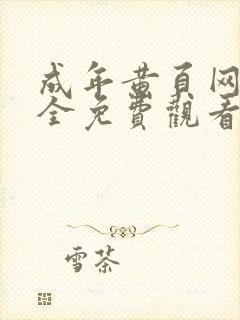 成年黄頁网
全免費觀看
雪茶